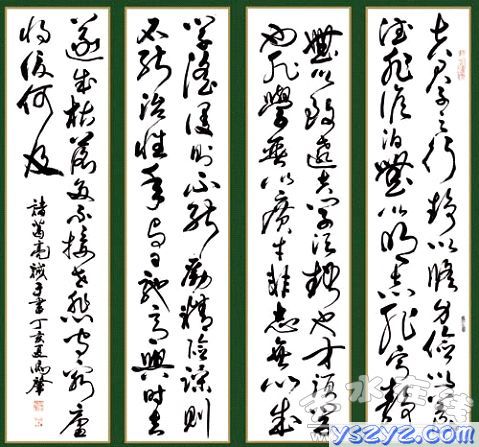 夫君子之行静以修身俭以养
德非淡泊無以明志非宁静
無以致遠夫学须静也才须学
也非學無以廣才非志無以成
学淫慢則不能勵精險躁則
不能治性年与日驰意與时去
遂成枯落多不接世悲守穷廬
将復何及
諸葛亮誡子書丁亥夏
yszyz.com